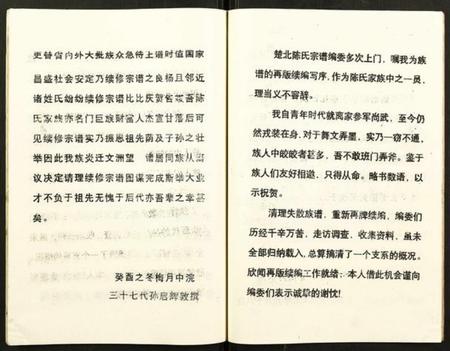 更替省内外大批族众急待上谱时值国家
昌盛社会安定乃续修宗谱之良杨且邻近
诸姓氏纷纷续修宗谱比比庆贺皆竣吾陈
氏家族亦名门臣族财富人杰宣廿落后可
见续修宗谱实乃振恩祖先荫及子孙之壮
举因此我族炎迁文洲望 请居同族从面
议决定请理续修宗谱图谋完成斯举大业
才不负于祖先无愧于后代亦吾辈之幸甚
矣。
癸酉之冬梅月中浣
三十七代孙启辉敦撰
楚北陈氏宗谱编委多次上门，嘱我为族
谱的再版续编写序，作为陈氏家族中之一员，
理当义不容辞。
我自青年时代就离家参军尚武，至今仍
然戎装在身，对于舞文弄墨，实乃一窃不通，
族人中皎皎者甚多，吾不敢班门弄斧。鉴于
族人们友好相邀，只得从命。略书数语，以
示祝贺。
清理失散族谱，重新再牌续编，编委们
历经千辛万苦，走访调查，收柔资料，虽未
全部归纳载入，总算搞清了一个支系的概况。
欣闻再版续编工作就绪，本人借此机会谨向
编委们表示诚挚的谢忱！